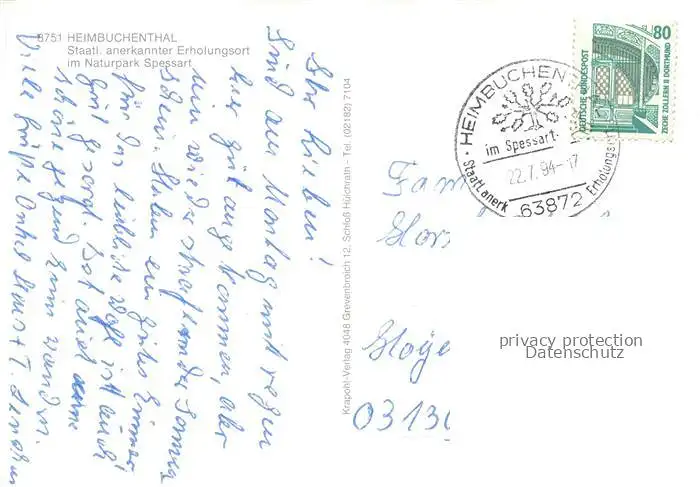 8751 HEIMBUCHENTHAL
Staatl. anerkannter Erholungsort
im Naturpark Spessart
Ihr Lieben!
Sind am Montag mit regen
hier gut angekommen, aber
nun wieder strahlender Sonnen
schein. Haben ein gutes Zimmer
für das leibliche Wohl ist auch
gut gesorgt. Ist auch eine
schöne gegend zum wandern.
Viele Grüße Onkel Hans + T.
Krapohl-Verlag 4048 Grevenbroich 12, Schloß Hülchrath - Tel. (02182) 7104
HEIMBUCHENTHAL
im Spessart
22.7.94-17
Staatl. anerk. Erholungsort
63872
80
DEUTSCHE BUNDESPOST
ZECHE ZOLLERN II DORTMUND
Fam
Hoye
03130
privacy protection
Datenschutz